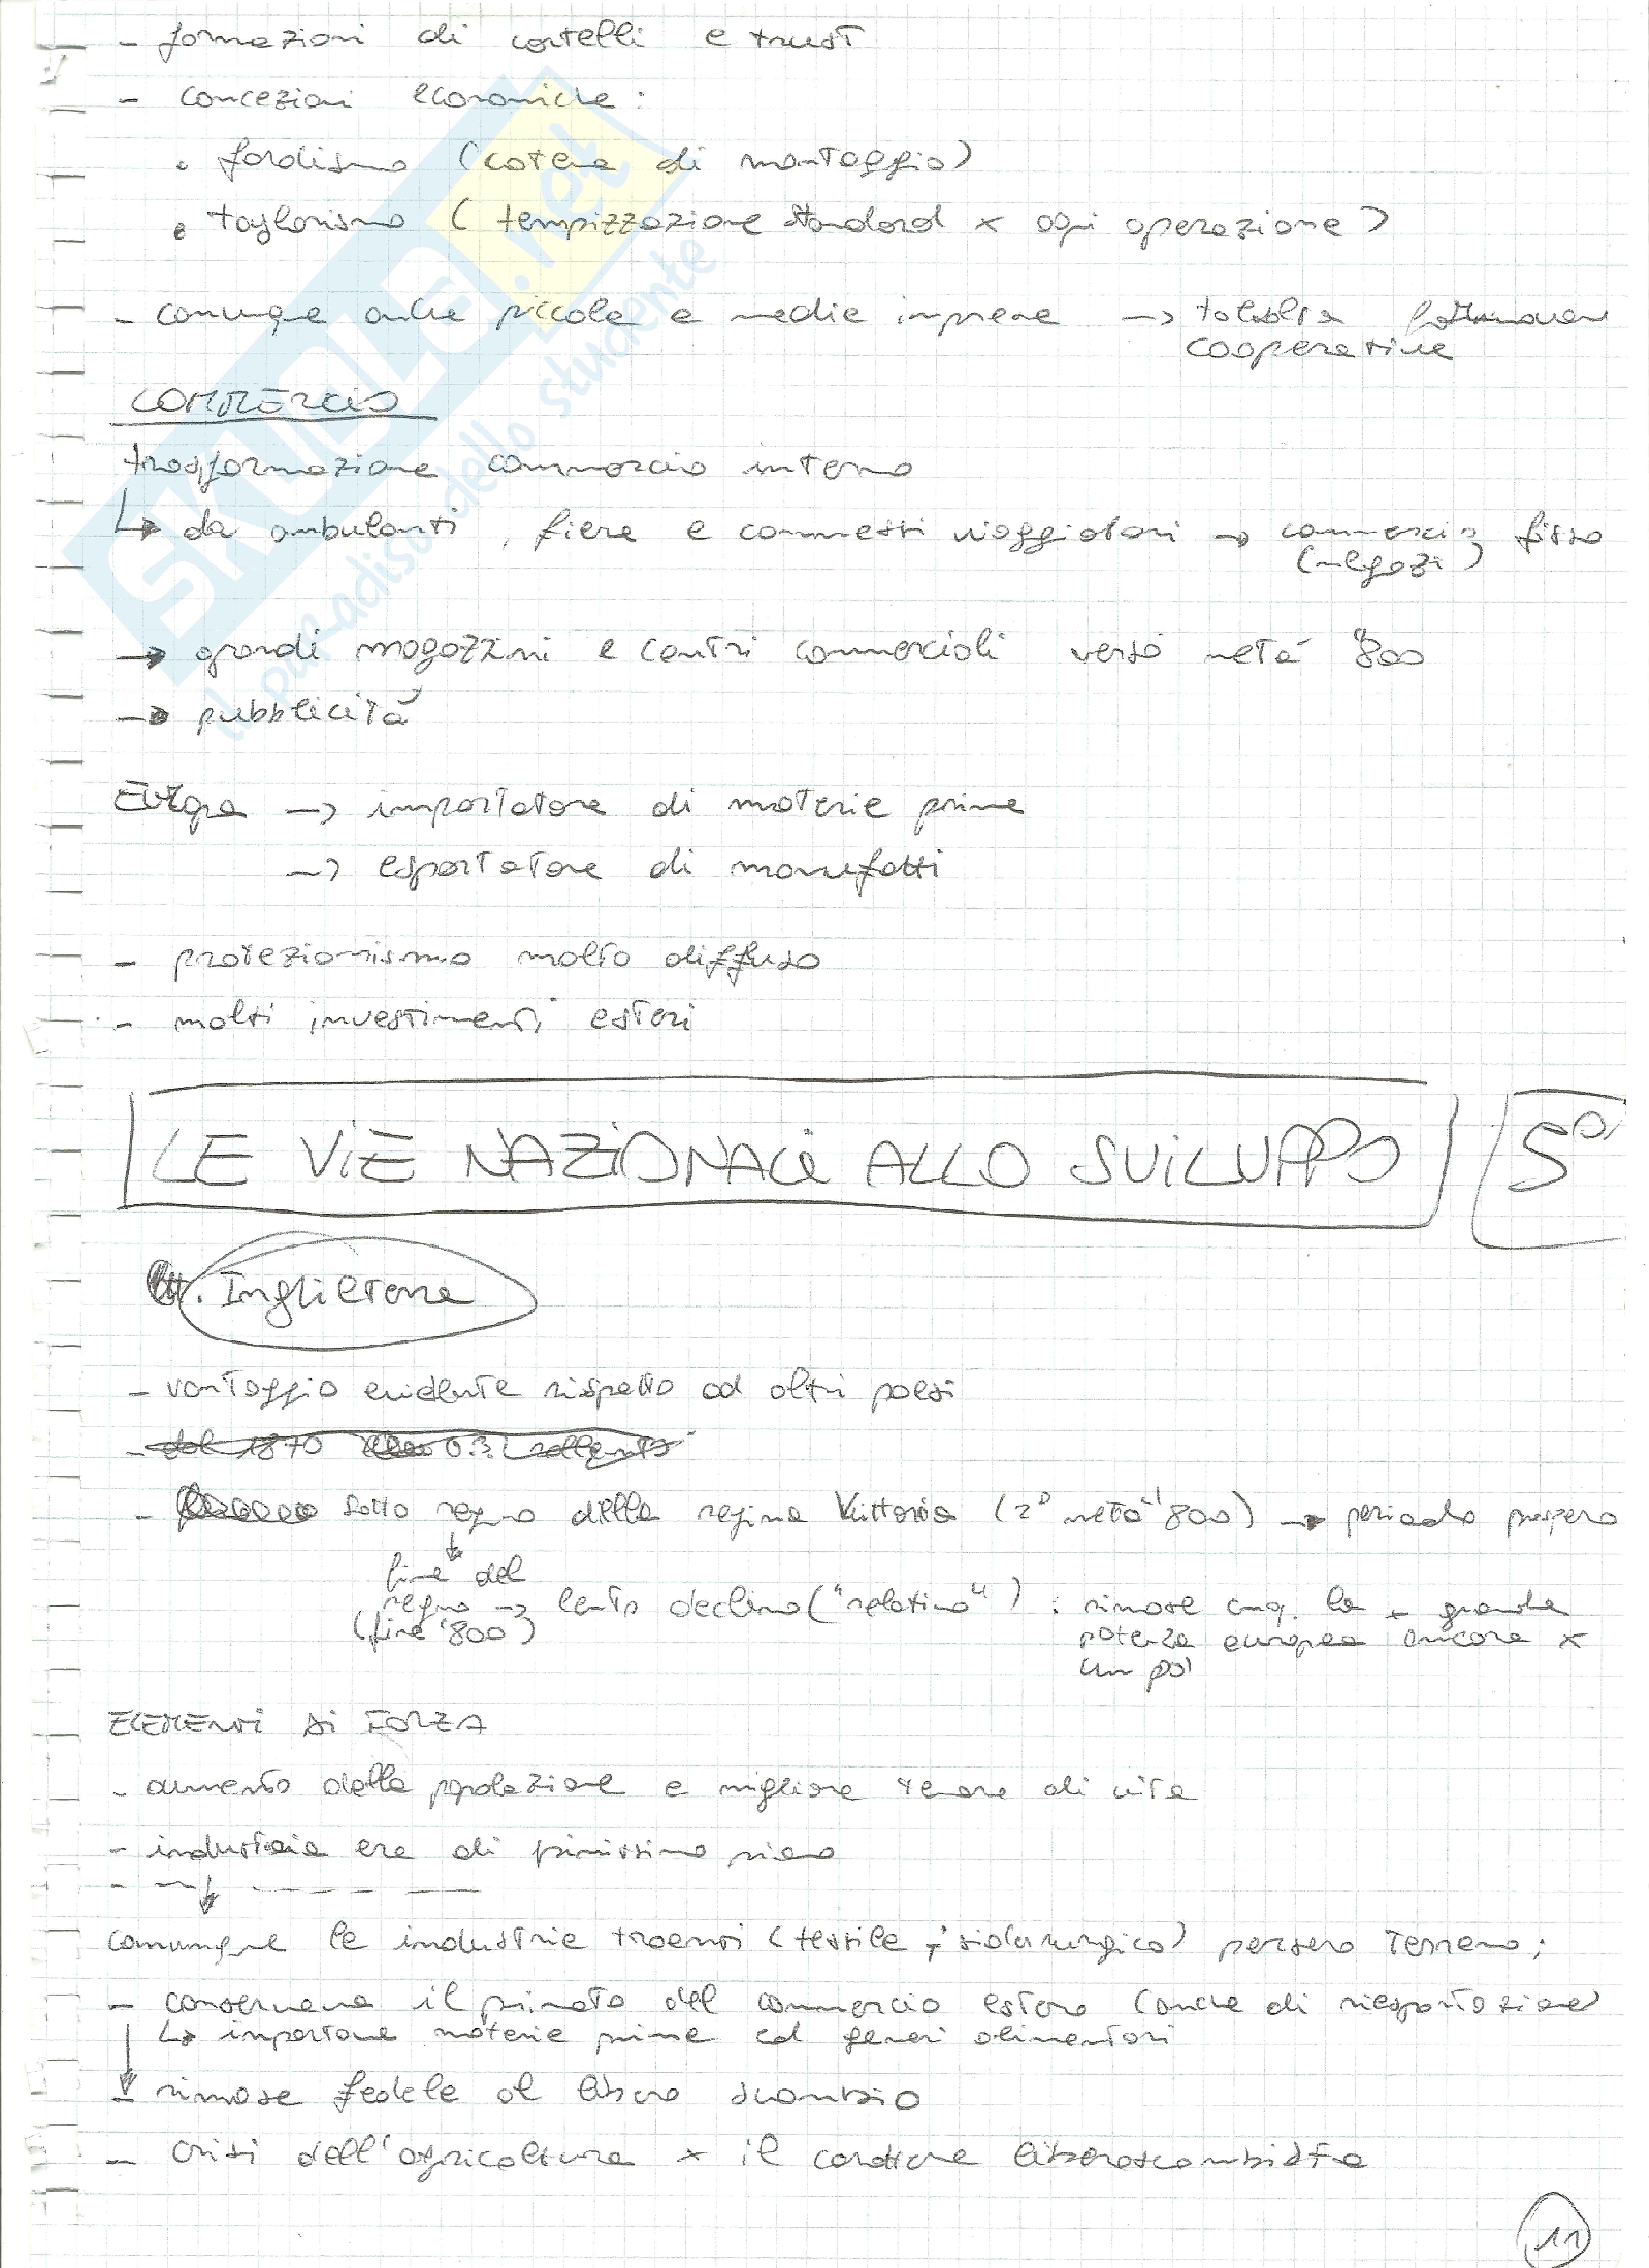 - formazioni di cartelli e trust
- concezioni economiche:
• fordismo (catena di montaggio)
• taylorismo (tempizzazione standard x ogni operazione)
- comunque anche piccole e medie imprese → talvolta formavano
cooperative
COMMERCIO
trasformazione commercio interno
↳ da ambulanti, fiere e commessi viaggiatori → commercio fisso
(negozi)
→ grandi magazzini e centri commerciali verso metà '800
→ pubblicità
Europa → importatore di materie prime
→ esportatore di manufatti
- protezionismo molto diffuso
- molti investimenti esteri
LE VIE NAZIONALI ALLO SVILUPPO 5°
. Inghilterra
- vantaggio evidente rispetto ad altri paesi
- dal 1870
- sotto regno della regina Vittoria (2° metà '800) → periodo prospero
↓
fine del
regno → lento declino ("relativo") : rimase cmq. la + grande
(fine '800) potenza europea ancora x
un po'
ELEMENTI DI FORZA
- aumento della popolazione e migliore tenore di vita
- industria era di primissimo piano
comunque le industrie trainanti (tessile, siderurgico) persero terreno;
- conservava il primato del commercio estero (anche di riesportazione)
↳ importava materie prime ed generi alimentari
- rimase fedele al libero scambio
- crisi dell'agricoltura x il carattere liberoscambista
11
SKUOLA.net
il paradiso dello studente